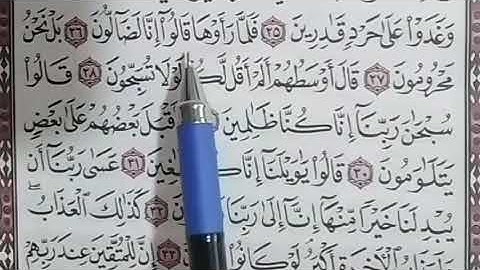 وَغَدَوْا۟ عَلَىٰ حَرْدٍ قَـٰدِرِينَ ٢٥ فَلَمَّا رَأَوْهَا قَالُوٓا۟ إِنَّا لَضَآلُّونَ ٢٦ بَلْ نَحْنُ
مَحْرُومُونَ ٢٧ قَالَ أَوْسَطُهُمْ أَلَمْ أَقُل لَّكُمْ لَوْلَا تُسَبِّحُونَ ٢٨ قَالُوا۟
سُبْحَـٰنَ رَبِّنَآ إِنَّا كُنَّا ظَـٰلِمِينَ فَأَقْبَلَ بَعْضُهُمْ عَلَىٰ بَعْضٍ
يَتَلَـٰوَمُونَ ٣٠ قَالُوا۟ يَـٰوَيْلَنَآ إِنَّا ٣١ عَسَىٰ رَبُّنَآ أَن
يُبْدِلَنَا خَيْرًا مِّنْهَآ إِنَّآ إِلَىٰ رَبِّنَا ٣٢ كَذَٰلِكَ ٱلْعَذَابُ ۖ
ٱلْـَٔاخِرَةِ أَكْبَرُ لَوْ كَانُوا۟ ٣٣ إِنَّ لِلْمُتَّقِينَ عِندَ رَبِّهِمْ